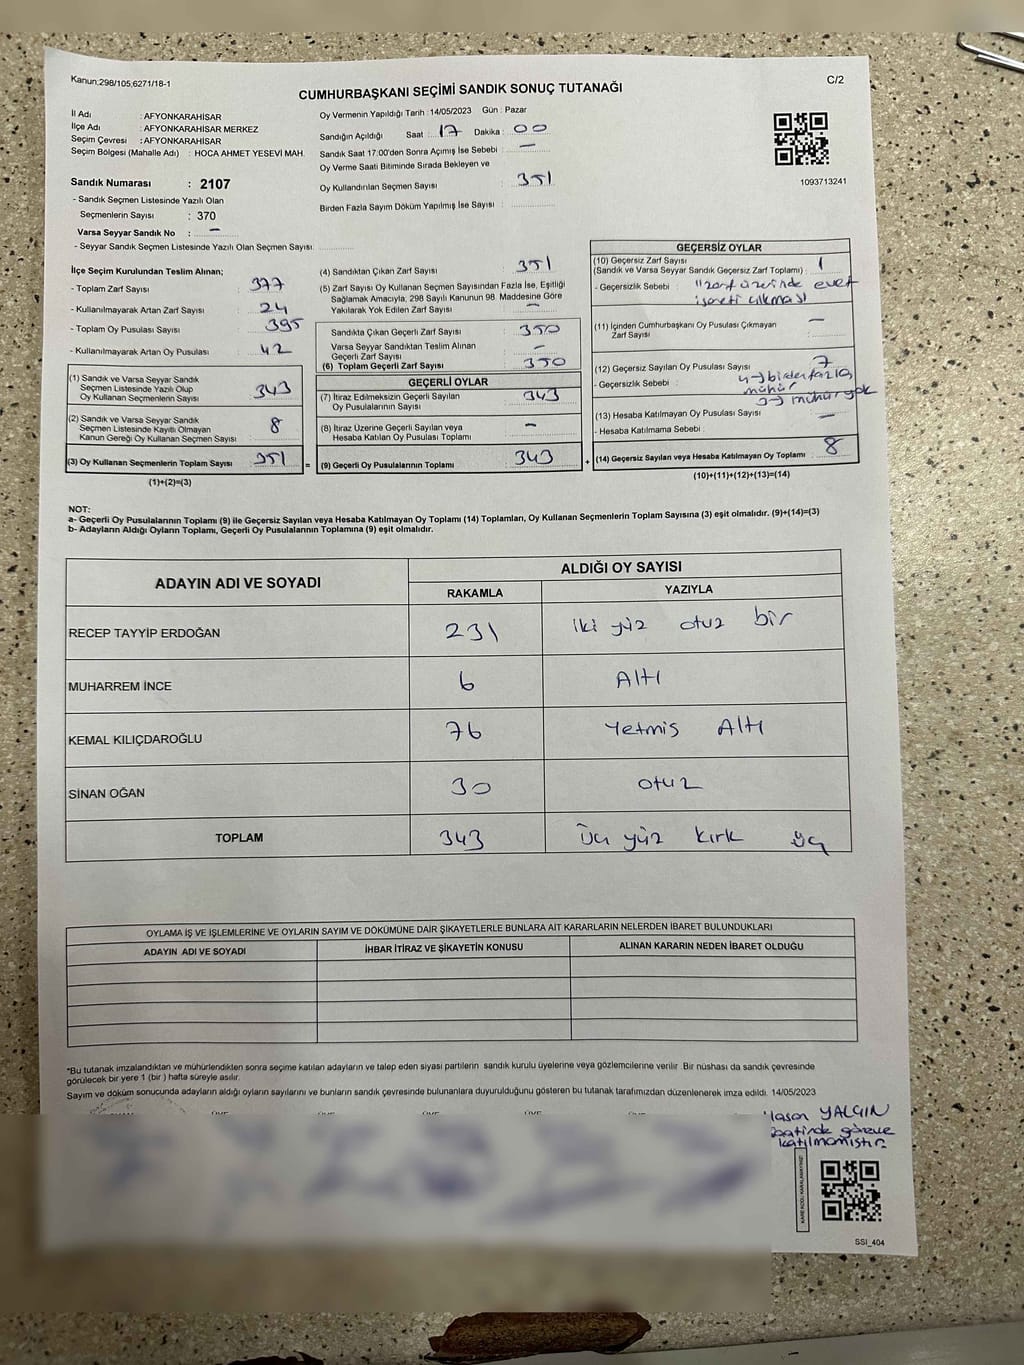 Kanun:298/105,6271/18-1
C/2
CUMHURBAŞKANI SEÇİMİ SANDIK SONUÇ TUTANAĞI
İl Adı : AFYONKARAHİSAR
İlçe Adı : AFYONKARAHİSAR MERKEZ
Seçim Çevresi : AFYONKARAHİSAR
Seçim Bölgesi (Mahalle Adı) : HOCA AHMET YESEVİ MAH.
Sandık Numarası : 2107
- Sandık Seçmen Listesinde Yazılı Olan
Seçmenlerin Sayısı : 370
Varsa Seyyar Sandık No : –
- Seyyar Sandık Seçmen Listesinde Yazılı Olan Seçmen Sayısı:
Oy Vermenin Yapıldığı Tarih : 14/05/2023 Gün : Pazar
Sandığın Açıldığı Saat : 17 Dakika : 00
Sandık Saat 17:00'den Sonra Açımış İse Sebebi : –
Oy Verme Saati Bitiminde Sırada Bekleyen ve
Oy Kullandırılan Seçmen Sayısı : 351
Birden Fazla Sayım Döküm Yapılmış İse Sayısı :
1093713241
İlçe Seçim Kurulundan Teslim Alınan;
- Toplam Zarf Sayısı : 377
- Kullanılmayarak Artan Zarf Sayısı : 24
- Toplam Oy Pusulası Sayısı : 395
- Kullanılmayarak Artan Oy Pusulası : 42
(1) Sandık ve Varsa Seyyar Sandık
Seçmen Listesinde Yazılı Olup
Oy Kullanan Seçmenlerin Sayısı : 343
(2) Sandık ve Varsa Seyyar Sandık
Seçmen Listesinde Kayıtlı Olmayan
Kanun Gereği Oy Kullanan Seçmen Sayısı : 8
(3) Oy Kullanan Seçmenlerin Toplam Sayısı : 351 =
(1)+(2)=(3)
(4) Sandıktan Çıkan Zarf Sayısı : 351
(5) Zarf Sayısı Oy Kullanan Seçmen Sayısından Fazla İse, Eşitliği
Sağlamak Amacıyla, 298 Sayılı Kanunun 98. Maddesine Göre
Yakılarak Yok Edilen Zarf Sayısı : –
Sandıkta Çıkan Geçerli Zarf Sayısı : 350
Varsa Seyyar Sandıktan Teslim Alınan
Geçerli Zarf Sayısı : –
(6) Toplam Geçerli Zarf Sayısı : 350
GEÇERLİ OYLAR
(7) İtiraz Edilmeksizin Geçerli Sayılan
Oy Pusulalarının Sayısı : 343
(8) İtiraz Üzerine Geçerli Sayılan veya
Hesaba Katılan Oy Pusulası Toplamı : –
(9) Geçerli Oy Pusulalarının Toplamı : 343 +
GEÇERSİZ OYLAR
(10) Geçersiz Zarf Sayısı
(Sandık ve Varsa Seyyar Sandık Geçersiz Zarf Toplamı) : 1
- Geçersizlik Sebebi : "zarf üzerinde evet
işareti çıkması
(11) İçinden Cumhurbaşkanı Oy Pusulası Çıkmayan
Zarf Sayısı : –
(12) Geçersiz Sayılan Oy Pusulası Sayısı : 7
- Geçersizlik Sebebi : 4-) birden fazla
mühür
3-) mühür yok
(13) Hesaba Katılmayan Oy Pusulası Sayısı : –
- Hesaba Katılmama Sebebi :
(14) Geçersiz Sayılan veya Hesaba Katılmayan Oy Toplamı : 8
(10)+(11)+(12)+(13)=(14)
NOT:
a- Geçerli Oy Pusulalarının Toplamı (9) ile Geçersiz Sayılan veya Hesaba Katılmayan Oy Toplamı (14) Toplamları, Oy Kullanan Seçmenlerin Toplam Sayısına (3) eşit olmalıdır. (9)+(14)=(3)
b- Adayların Aldığı Oyların Toplamı, Geçerli Oy Pusulalarının Toplamına (9) eşit olmalıdır.
ADAYIN ADI VE SOYADI
ALDIĞI OY SAYISI
RAKAMLA YAZIYLA
RECEP TAYYİP ERDOĞAN 231 iki yüz otuz bir
MUHARREM İNCE 6 Altı
KEMAL KILIÇDAROĞLU 76 Yetmiş Altı
SİNAN OĞAN 30 otuz
TOPLAM 343 üç yüz kırk üç
OYLAMA İŞ VE İŞLEMLERİNE VE OYLARIN SAYIM VE DÖKÜMÜNE DAİR ŞİKAYETLERLE BUNLARA AİT KARARLARIN NELERDEN İBARET BULUNDUKLARI
ADAYIN ADI VE SOYADI İHBAR İTİRAZ VE ŞİKAYETİN KONUSU ALINAN KARARIN NEDEN İBARET OLDUĞU
*Bu tutanak imzalandıktan ve mühürlendikten sonra seçime katılan adayların ve talep eden siyasi partilerin sandık kurulu üyelerine veya gözlemcilerine verilir. Bir nüshası da sandık çevresinde
görülecek bir yere 1 (bir) hafta süreyle asılır.
Sayım ve döküm sonucunda adayların aldığı oyların sayılarını ve bunların sandık çevresinde bulunanlara duyurulduğunu gösteren bu tutanak tarafımızdan düzenlenerek imza edildi. 14/05/2023
YALÇIN
göreve
katılmamıştır
SSI_404